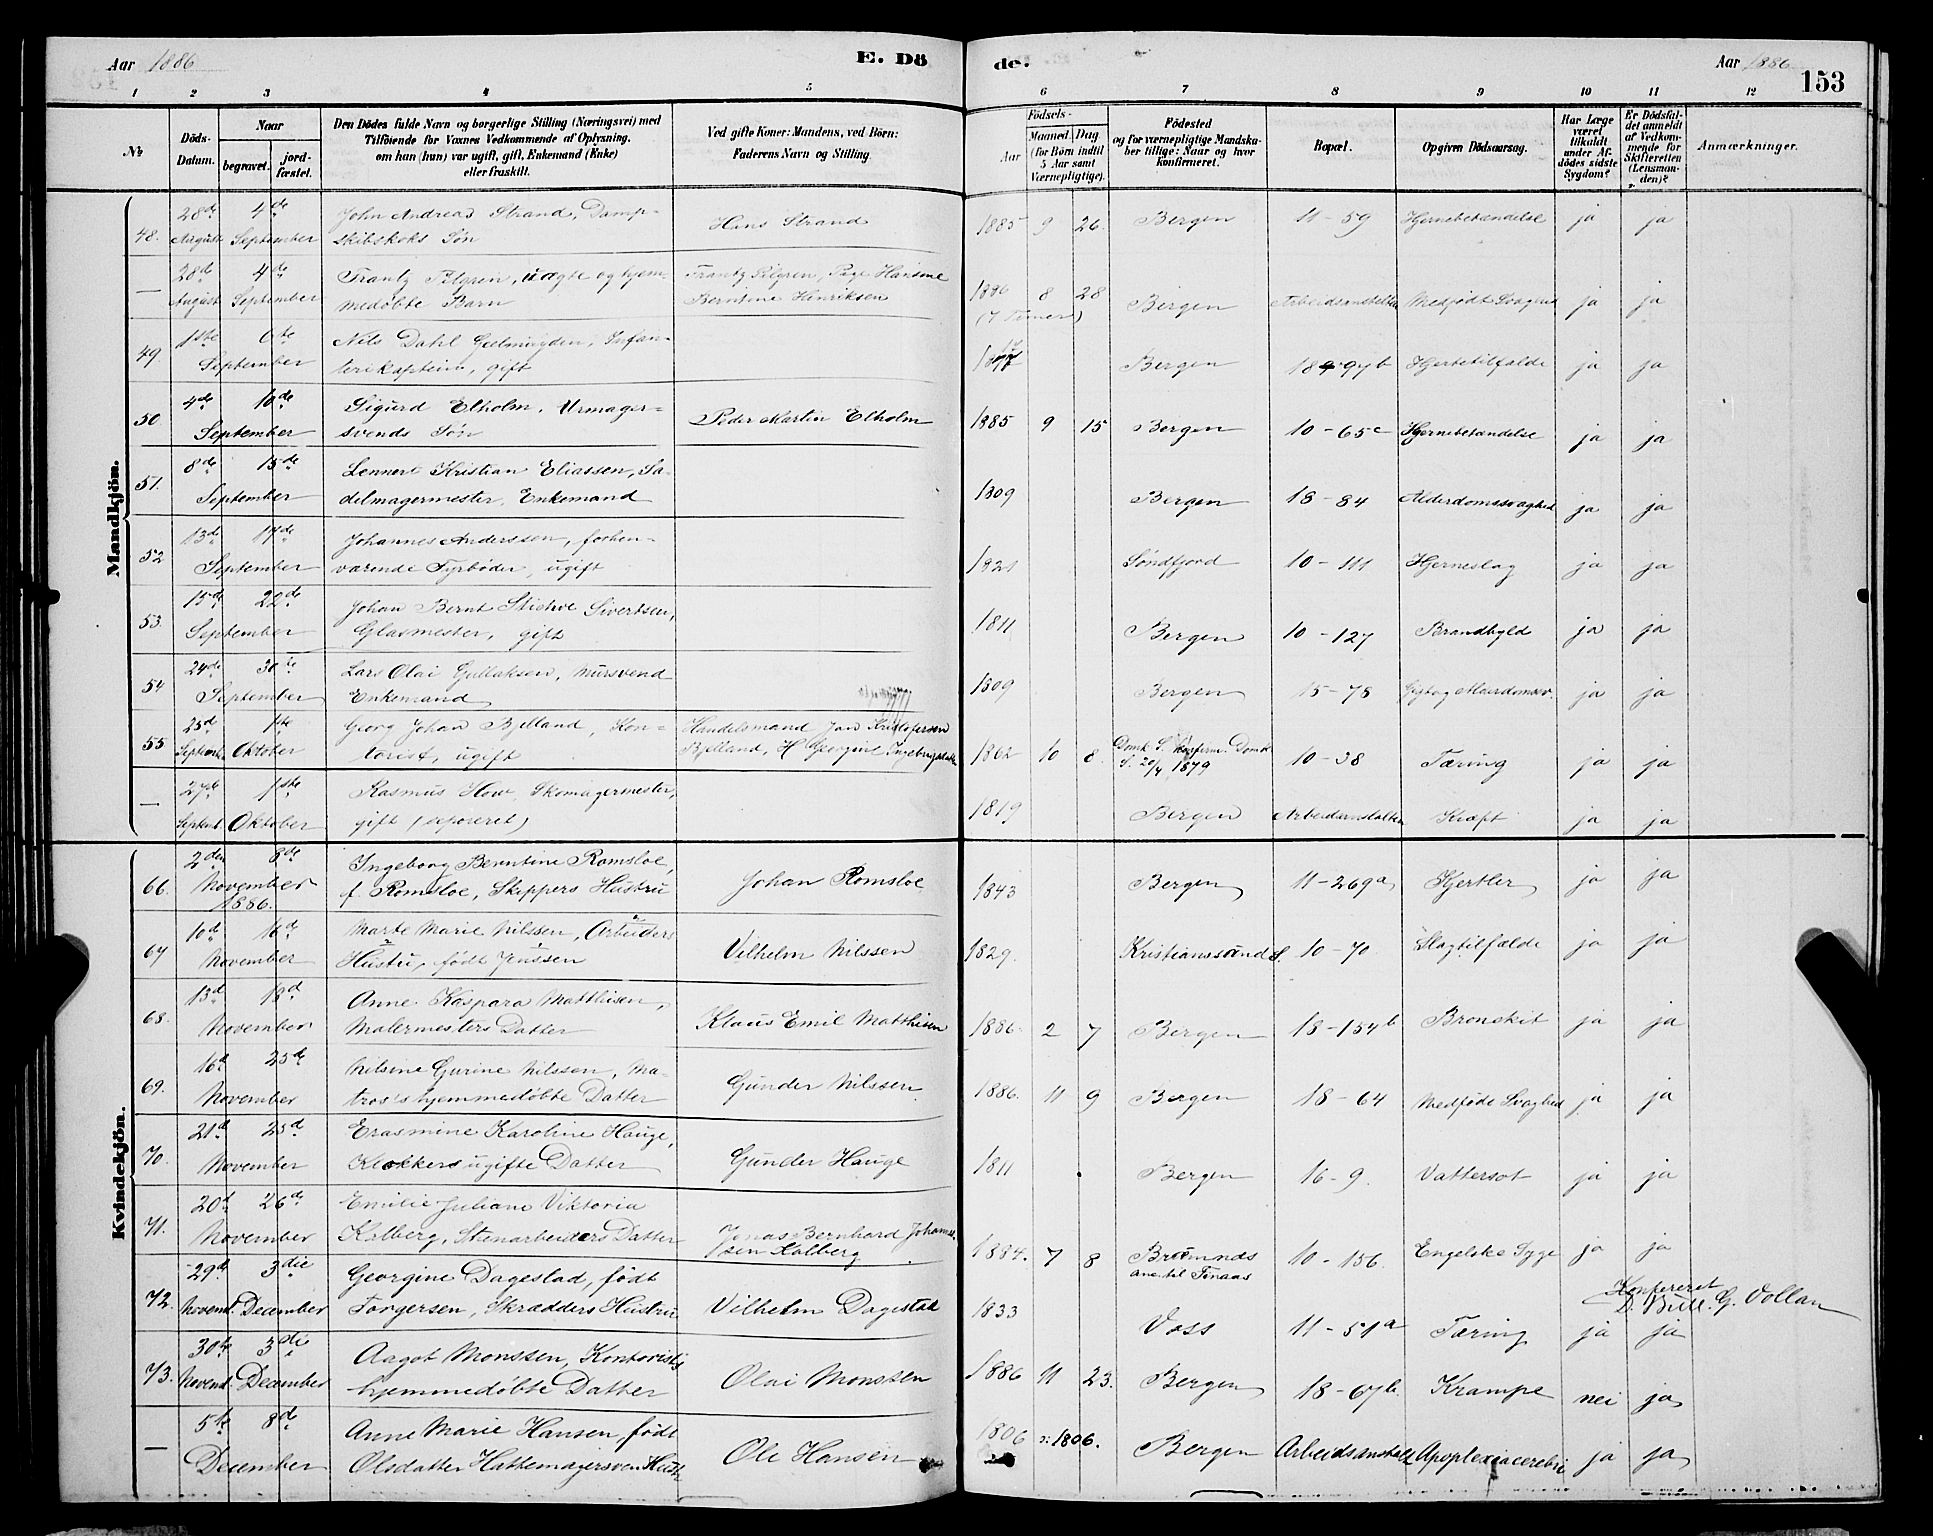 Aar 1886
E. Dö
de.
Aar 1886
153
1 2 3 4 5 6 7 8 9 10 11 12
№
Döds-Datum.
Naar
begravet.
jord-fæstet.
Den Dödes fulde Navn og borgerlige Stilling (Næringsvei) med
Tilföiende for Voxnes Vedkommende af Oplysning.
om han (hun) var ugift, gift, Enkemand (Enke)
eller fraskilt.
Ved gifte Koner: Mandens, ved Börn:
Faderens Navn og Stilling.
Födsels-
Aar
Maaned. Dag
(for Börn indtil
5 Aar samt
Værnepligtige).
Födested
og for værnepligtige Mandska-
ber tillige: Naar og hvor
konfirmeret.
Bopæl.
Opgiven Dödsaarsag.
Har Læge
været
tilkaldt
under Af-
dödes sidste
Sygdom?
Er Dödsfal-
det anmeldt
af Vedkom-
mende for
Skifteretten
(Lensman-
den)?
Anmærkninger.
Mandkjön.
48. 28de August 4de September John Andreas Strand, Damp-
skibskoks Søn Hans Strand 1885 9 26. Bergen 11-59 Hjernebetændelse ja ja
— 28d August 4de September Frantz Pilgren, uægte og hjem-
medøbte Barn Frantz Pilgren, Pige Hansine
Berntine Henriksen 1886 8 28 (7 Timer) Bergen Arbeidsanstalten Medfødt Svaghed ja ja
49. 1ste 6te September Nils Dahl Gelmuyden, Infan-
terikaptein, gift Bergen 97b Hjertetilfælde ja ja
50 4de 10de September Sigurd Elholm, Urmager-
svends Søn Peder Martin Elholm 1885 9 15 Bergen 10-65c Hjernebetændelse ja ja
51. 8de 15de September Lennert Kristian Eliassen, Sa-
delmagermester, Enkemand 1809 Bergen 18-84 Alderdomssvaghed ja ja
52 13de 17de September Johannes Anderssen, forhen-
værende Fyrbøder, ugift 1821 Søndfjord 10-111 Hjerneslag ja ja
53. 15de 22de September Johan Bernt Sivertsen,
Glasmester, gift 1811 Bergen 10-127 Brandbyld ja ja
54 24de 30te September Lars Olai Gullaksen, Mursvend
Enkemand 1809 Bergen 15-78 Gigt og Alderdomssv. ja ja
55 25d Septemb. 1ste Oktober Georg Johan Bjelland, Kon-
torist, ugift Handelsmand Jon Kristofersen
Bjelland, H Georgine Ingebrigtsdatter 1862 10 8. Domk. S. Konfirm. Domk
S. 20/4 1879 10-38 Tæring ja ja
— 27de Septemb. 1ste Oktober Rasmus How, Skomagermester,
gift (separeret) 1819 Bergen Arbeidsanstalten Kræft ja ja
Kvindekjön.
66. 2den 8de November 1886. Ingeborg Berntine Romsloe,
f. Romsloe, Skippers Hustru Johan Romsloe 1843 Bergen 11-269a Kjertler ja ja
67 10de 16de November Marte Marie Nilssen, Arbeiders
Hustru, født Jenssen Vilhelm Nilssen 1829. Kristianssund S. 10-70 Slagtilfælde ja ja
68. 13d 18d November Anne Kaspara Matthisen,
Malermesters Datter Klaus Emil Matthisen 1886. 2 7 Bergen 18-154b Bronskit ja ja
69. 16d 25de November Nilsine Gurine Nilssen, Ma-
tros's hjemmedøbte Datter Gunder Nilssen. 1886. 11 9 Bergen 18-64 Medfødt Svaghed ja ja
70. 21d 25d November Erasmine Karoline Hauge,
Klokkers ugifte Datter Gunder Hauge 1811 Bergen 16-9. Vattersot ja ja
71. 20d 26de November Emilie Juliane Viktoria
Kalberg, Stenarbeiders Datter Jonas Bernhard Johannes-
sen Kalberg 1884. 7 8 10-156 Engelske Syge ja ja
Konfereret
D. Bull. G. Vollan
72. 29d Novemb. 3die December Georgine Dagestad, født
Torgersen, Skrædders Hustru Vilhelm Dagestad 1833 Voss 11-51a Tæring ja ja
73. 30te Novemb. 3die December Aagot Monssen, Kontorists
hjemmedøbte Datter Olai Monssen 1886 11 23. Bergen 18-67b. Krampe nei ja
— 5te 8de December Anne Marie Hansen, født
Olsdatter Hattemagersvens Hustr Ole Hansen 1806 ɔ: 1806. Bergen Arbeidsanstalt Apoplexia cerebri ja ja